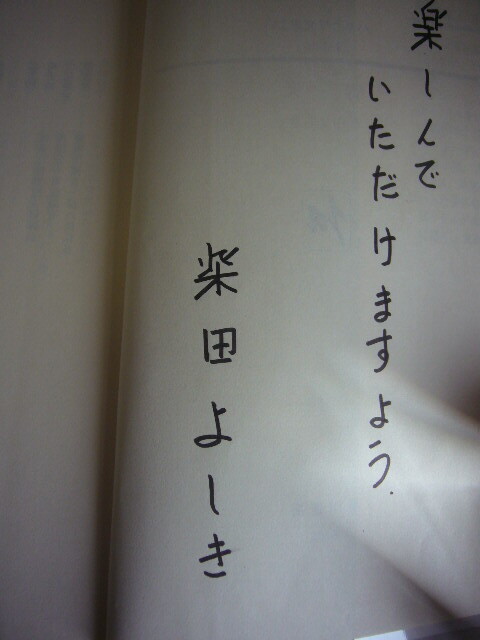 楽しんで
いただけますよう.
柴田よしき